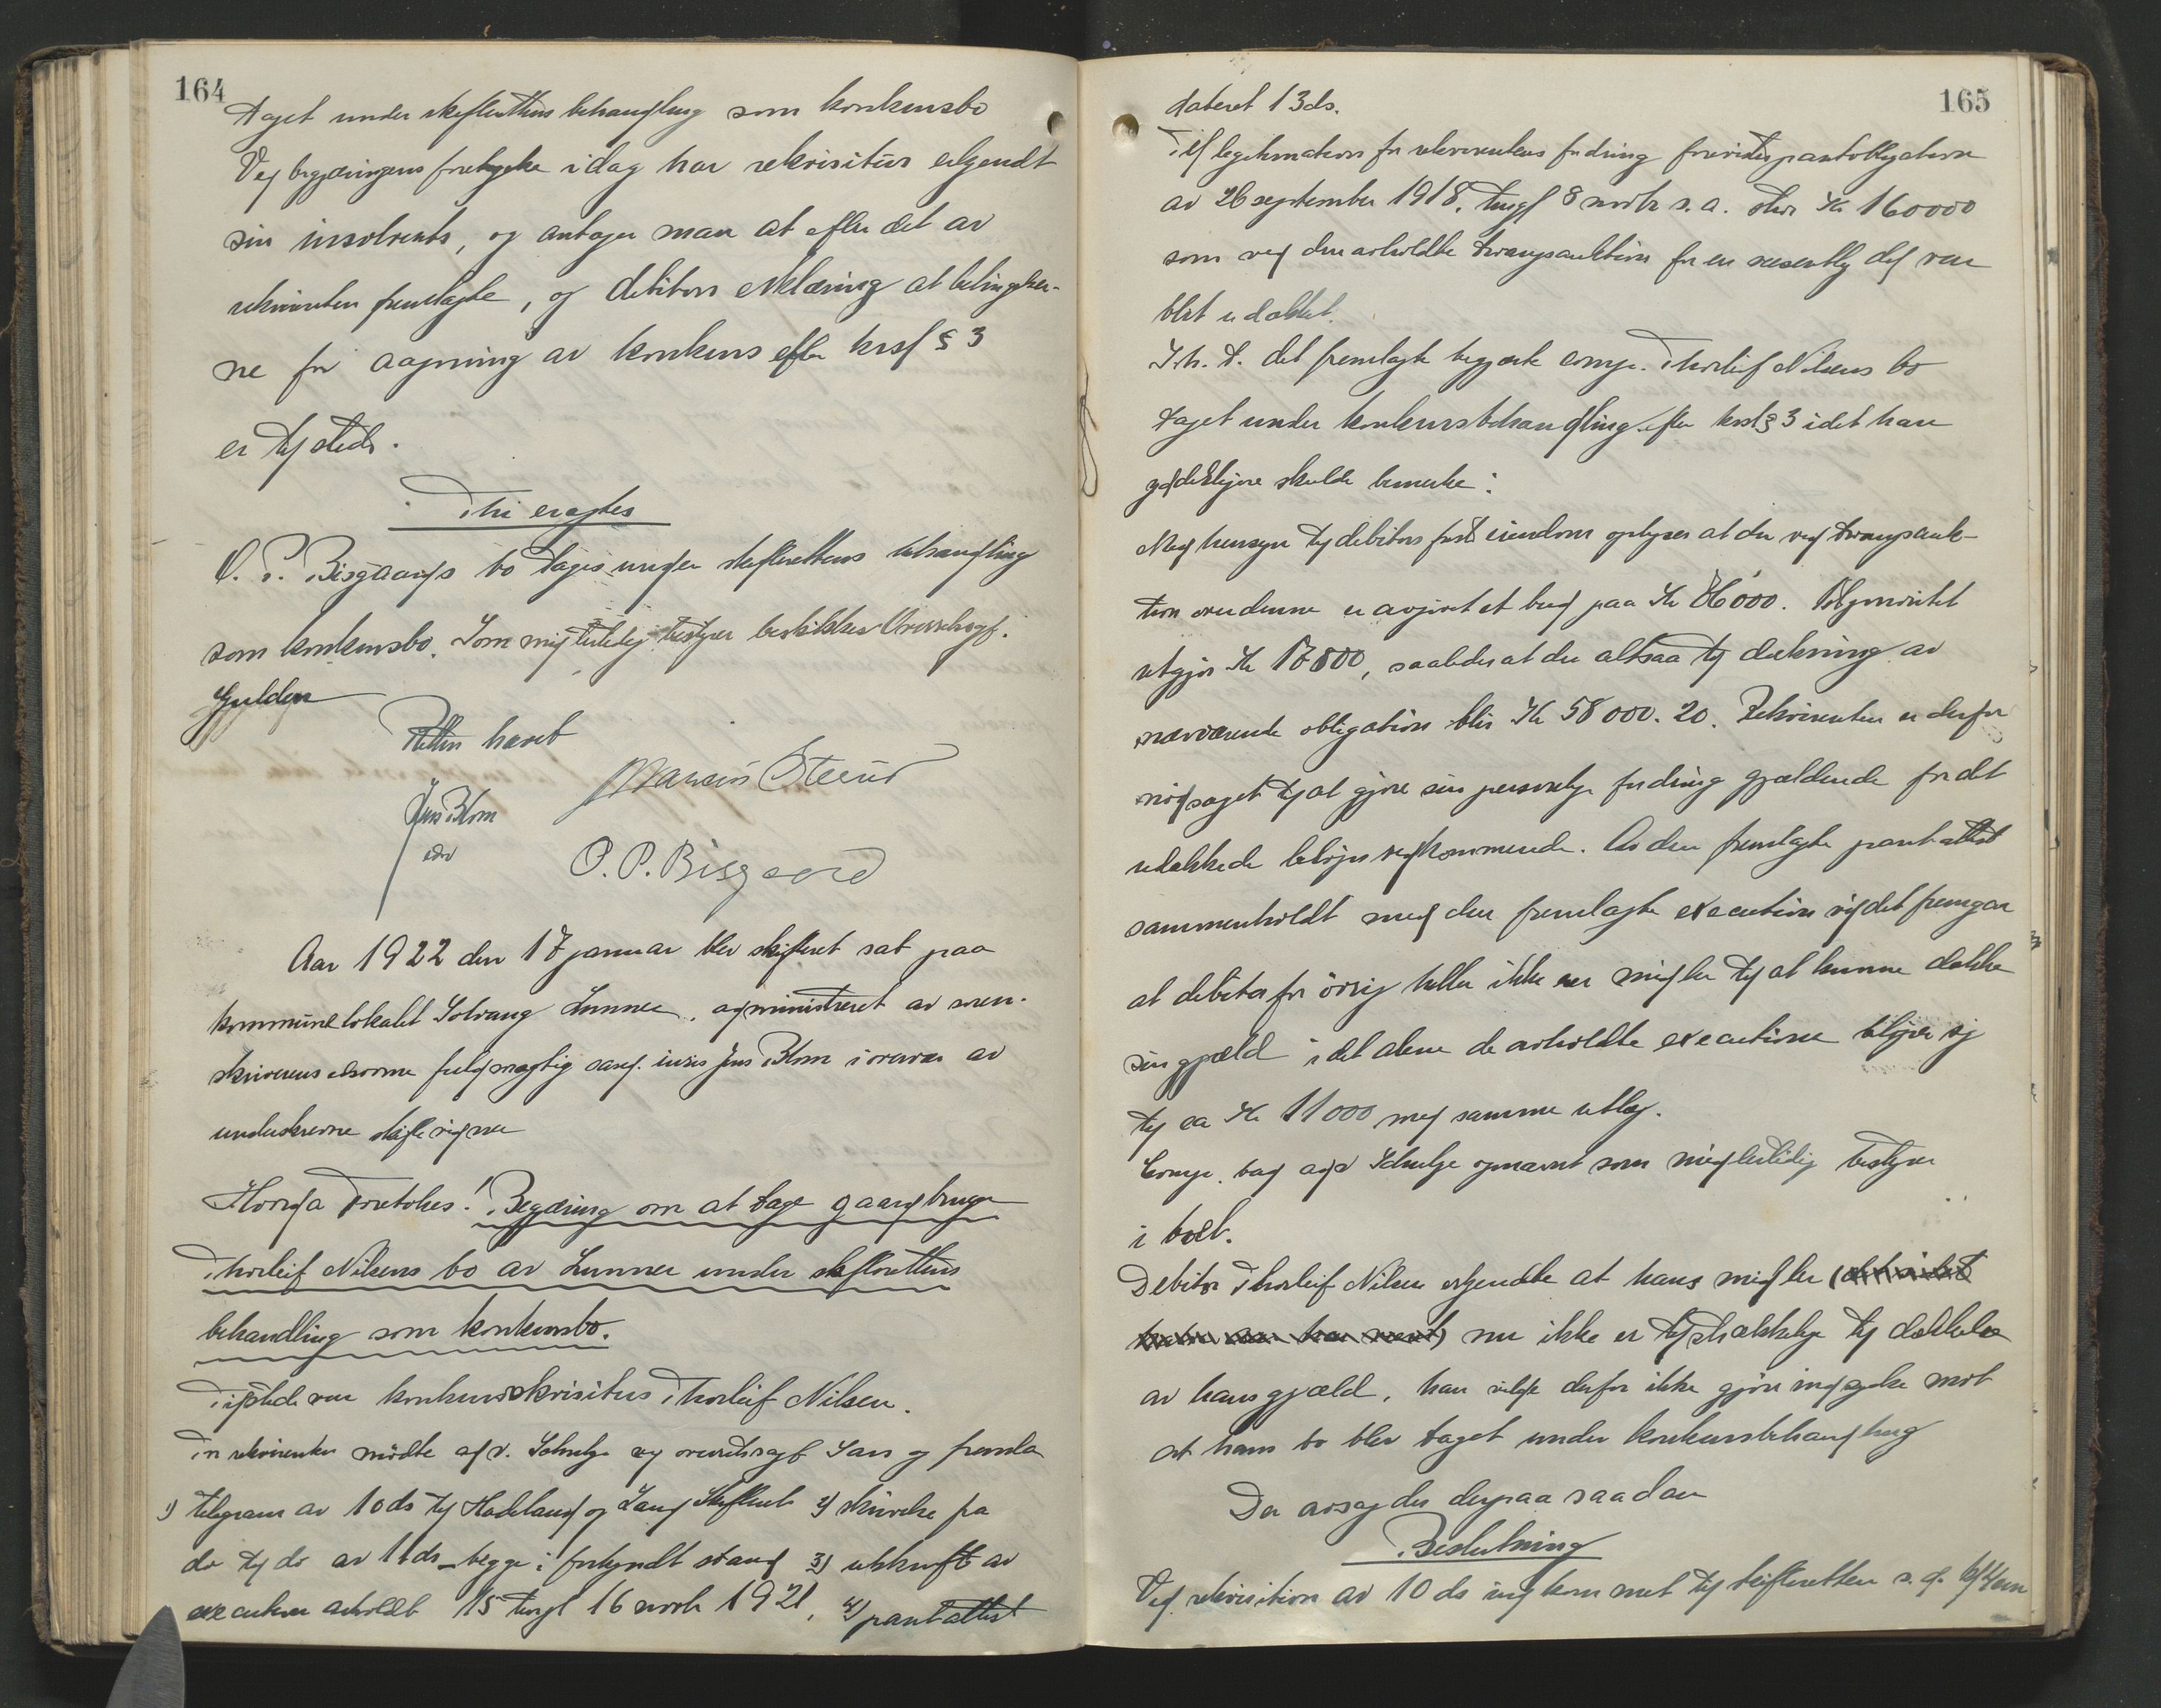 164
taget under skifterettens behandling som konkursbo
Ved begjæringens foretagelse idag har rekvisitus erkjendt
sin insolvents, og antager man at efter det av
rekvirenten fremlagte, og debitors erklæring at betingelser-
ne for aapning av konkurs efter krsl § 3
er tilstede.
Thi eragtes
O. P. Bisgaards bo tages under skifterettens behandling
som konkursbo. Som midlertidig bestyrer beskikkes Overretssagf.
Gulden
Retten hævet
Jens Blom
edv
O. P. Bisgaard
Aar 1922 den 17 januar blev skifteret sat paa
kommunelokalet Solvang Lunner, administreret av soren-
skriverens edsvorne fuldmægtig cand. juris Jens Blom i overvær av
underskrevne skiftevidner
Hvorda Foretokes: Begjæring om at tage gaardbruger
Thorleif Nilsens bo av Lunner under skifterettens
behandling som konkursbo.
Tilstede var konkursrekvisitus Thorleif Nilsen.
For rekvirenten mødte adv. Schulze ved overretssagf. Sars og fremla
1) telegram av 10 ds til Hadeland og Land Skifteret 2) skrivelse fra
do til do av 11 ds – begge i forkyndt stand 3) utskrift av
execution avholdt 15 tingl 16 novbr 1921, 4) pantattest
165
dateret 13 ds.
Til legitimation for rekvirentens fordring forevistes pantobligation
av 26 september 1918, tingl 8 novbr s. a. stor Kr 160000
som ved den avholdte tvangsauktion for en væsentlig del var
blit udækket.
I h. t. det fremlagte begjærte comp. Thorleif Nilsens bo
taget under konkursbehandling efter krsl § 3 idet han
yderligere skulde bemerke:
Med hensyn til debitors faste eiendom oplyses at der ved tvangsauk-
tion over denne er avgivet et bud paa Kr 86000.
utgjør Kr 17800, saaledes at der altsaa til dækning av
nærværende obligation blir Kr 58000.20. Rekvirenten er derfor
nødsaget til at gjøre sin personlige fordring gjældende for det
udækkede beløps vedkommende. Av den fremlagte pantattest
sammenholdt med den fremlagte execution vil det fremgaa
at debitor for øvrig heller ikke eier midler til at kunne dække
sin gjæld idet alene de avholdte executioner beløper sig
til ca Kr 11000 med samme utlæg.
Comp. bad adv Schulze opnævnt som midlertidig bestyrer
i boet.
Debitor Thorleif Nilsen erkjendte at hans midler
nu ikke er tilstrækkelige til dækkelse
av hans gjæld, han vilde derfor ikke gjøre indsigelse mot
at hans bo blev taget under konkursbehandling
Der avsagdes derpaa saadan
Beslutning
Ved rekvisition av 10 ds indkommet til skifteretten s. d.